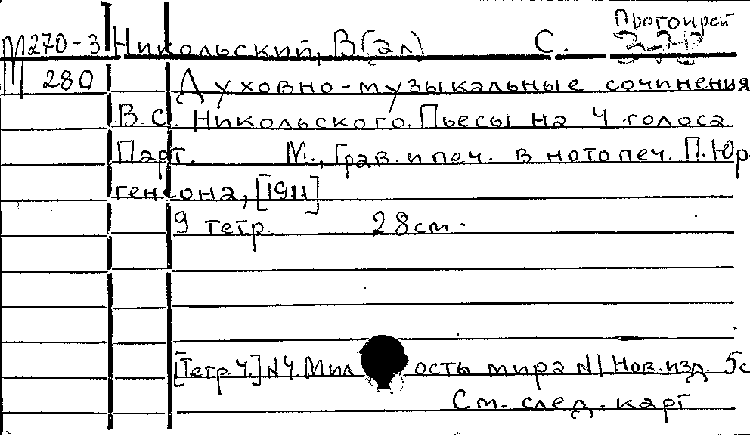 Протоирей
М270-3 Никольский, В(ал) С.
280 Духовно-музыкальные сочинения
В.С. Никольского. Пьесы на 4 голоса
Парт. М., Грав. и печ. в нотопеч. П. Юр
генсона, [1911]
9 тетр. 28см.
[Тетр.4.] N4. Милость мира N1 Нов. изд. 5с
См. след. карт